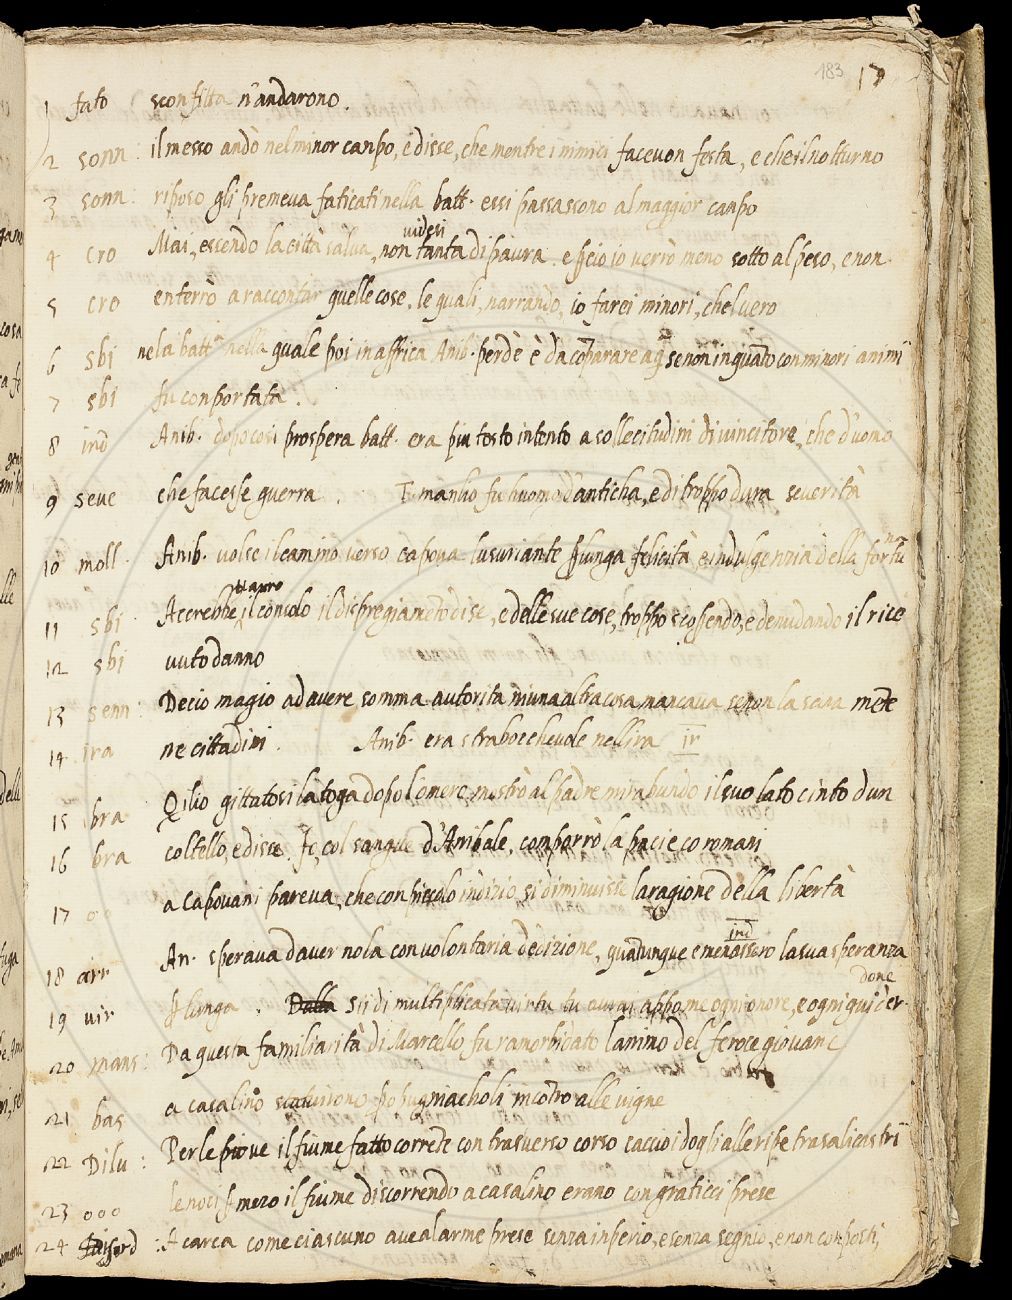 183 17
1 fato sconfitta n'andarono.
2 sonn: il messo andò nel minor canpo, e disse, che mentre i nimici facevon festa, e che il notturno
3 sonn: riposo gli premeva faticati nella batt. essi passassono al maggior canpo
videsi
4 cro Mai, essendo la città salva, non tanta di paura. e però io verrò meno sotto al peso, e non
5 cro enterrò a raccontar quelle cose, le quali, narrando, io farei minori, che 'l vero
6 sbi ne la batt. nella quale poi in affrica Anib. perdè è da conparare a q se non in quanto con minori animi
7 sbi fu conportata.
8 ind Anib. dopo così prospera batt. era piu tosto intento a sollecitudini di vincitore, che d'uomo
9 seve che facesse guerra. T. manlio fu huomo d'anticha, e di troppo dura severità
10 moll. Anib. volse il camino verso capova lusuriante p lunga felicità e indulgenzia della fortuna
Mauro
11 sbi Accrebbe, il consolo il dispregiamento di se, e delle sue cose, troppo scoprendo, e denudando il rice
12 sbi vuto danno
13 senn: Decio magio ad avere somma autorita niuna altra cosa mancava se non la sana mente
14 ira ne cittadini. Anib. era strabocchevole nell'ira ir
15 bra Qilio gittatosi la toga dopo l'omere mostrò al padre mirabundo il suo lato cinto d un
16 bra coltello, e disse. Io, col sangue d'Anibale, comporrò la pacie co romani
17 oo a capovani pareva, che con picciolo indizio si diminuisse la ragione della libertà
ind
18 arr An. sperava d'aver nola con volontaria dedizione, quantunque e menassero la sua speranza
done
19 vir p lunga. Dalla Si di multiplicata virtu tu avrai appo me ogni onore, e ogni guider
20 mans: Da questa familiarità di Marcello fu ramorbidato l'animo del feroce giovane
21 bas a casalino p pugnacholi incontro alle vigne
22 Dilu: Per le piove il fiume fatto corrente con trasverso corso cacciò i dogli alle ripe tra salicastri
23 ooo le noci p mezo il fiume discorrendo a casalino erano con graticci prese
24 :A carca come ciascuno ave al arme prese senza inperio, e senza segnio, e non conposti,